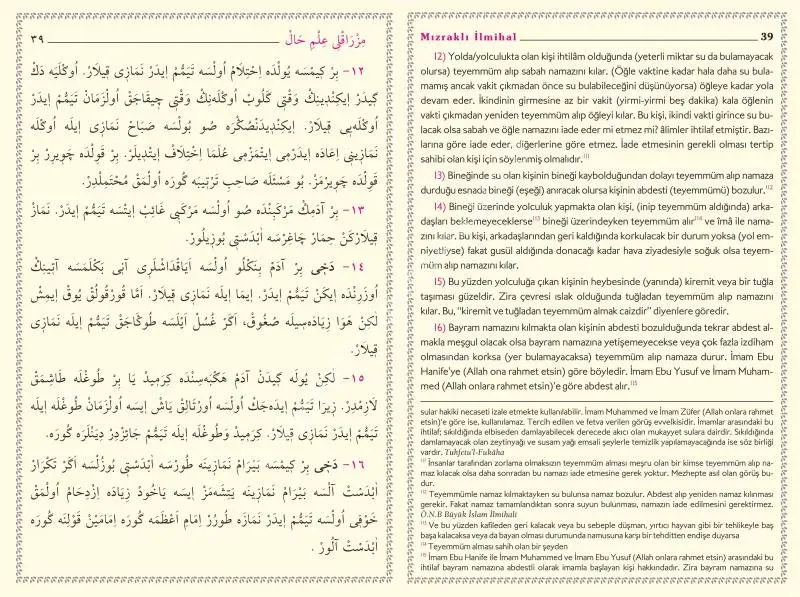 ٣٩ مِزْرَاقْلِى عِلْمِ حَالْ
١٢- بِرْ كِيمْسَه يُولْدَه اِحْتِلَامْ اُولْسَه تَيَمُّمْ اِيدَرْ نَمَازِى قِيلَارْ. اُوكْلَيَه دَكْ
كِيدَرْ اِيكِنْدِينِكْ وَقْتِى كَلُوبْ اُوكْلَه‌نِكْ وَقْتِى چِيقَاجَقْ اُولْزَمَانْ تَيَمُّمْ اِيدَرْ
اُوكْلَه‌يِى قِيلَارْ. اِيكِنْدِيدَنْصُكْرَه صُو بُولْسَه صَبَاحْ نَمَازِى اِيلَه اُوكْلَه
نَمَازِينِى اِعَادَه اِيدَرْمِى اِيتْمَزْمِى عُلَمَا اِخْتِلَافْ اِيتْدِيلَرْ. بِرْ قَوْلْدَه چَوِيرِرْ بِرْ
قَوْلْدَه چَوِيرْمَزْ. بُو مَسْئَلَه صَاحِبِ تَرْتِيبَه كُورَه اُولْمَقْ مُحْتَمِلْدِرْ.
١٣- بِرْ آدَمِكْ مَرْكَبِنْدَه صُو اُولْسَه مَرْكَبِى غَائِبْ اِيتْسَه تَيَمُّمْ اِيدَرْ. نَمَازْ
قِيلَارْكَنْ حِمَارْ چَاغِرْسَه اَبْدَسْتِى بُوزِيلُورْ.
١٤- دَخِى بِرْ آدَمْ بِنَكْلُو اُولْسَه اَيَاقْدَاشْلَرِى آنِى بَكْلَمَسَه آتِينِكْ
اُوزَرِنْدَه اِيكَنْ تَيَمُّمْ اِيدَرْ. اِيمَا اِيلَه نَمَازِى قِيلَارْ. اَمَّا قُورْقُولُقْ يُوقْ اِيمِشْ
لَكِنْ هَوَا زِيَادَه‌سِيلَه صُغُوقْ، اَكَرْ غُسْلْ اَيْلَسَه طُوكَاجَقْ تَيَمُّمْ اِيلَه نَمَازِى
قِيلَارْ.
١٥- لَكِنْ يُولَه كِيدَنْ آدَمْ هَكْبَه‌سِنْدَه كِرَمِيدْ يَا بِرْ طُوغْلَه طَاشِمَقْ
لَازِمْدِرْ. زِيرَا تَيَمُّمْ اِيدَه‌جَكْ اُولْسَه اُورْتَالِقْ يَاشْ اِيسَه اُولْزَمَانْ طُوغْلَه اِيلَه
تَيَمُّمْ اِيدَرْ نَمَازِى قِيلَارْ. كِرَمِيدْ وَطُوغْلَه اِيلَه تَيَمُّمْ جَائِزْدِرْ دِيَنْلَرَه كُورَه.
١٦- دَخِى بِرْ كِيمْسَه بَيْرَامْ نَمَازِينَه طُورْسَه اَبْدَسْتِى بُوزُلْسَه اَكَرْ تَكْرَارْ
اَبْدَسْتْ آلْسَه بَيْرَامْ نَمَازِينَه يَتِشَه‌مَزْ اِيسَه يَاخُودْ زِيَادَه اِزْدِحَامْ اُولْمَقْ
خَوْفِى اُولْسَه تَيَمُّمْ اِيدَرْ نَمَازَه طُورُرْ اِمَامِ اَعْظَمَه كُورَه اِمَامَيْنْ قَوْلِنَه كُورَه
اَبْدَسْتْ آلُورْ .
Mızraklı İlmihal 39
12) Yolda/yolculukta olan kişi ihtilâm olduğunda (yeterli miktar su da bulamayacak
olursa) teyemmüm alıp sabah namazını kılar. (Öğle vaktine kadar hala daha su bula-
mamış ancak vakit çıkmadan önce su bulabileceğini düşünüyorsa) öğleye kadar yola
devam eder. İkindinin girmesine az bir vakit (yirmi-yirmi beş dakika) kala öğlenin
vakti çıkmadan yeniden teyemmüm alıp öğleyi kılar. Bu kişi, ikindi vakti girince su bu-
lacak olsa sabah ve öğle namazını iade eder mi etmez mi? âlimler ihtilaf etmiştir. Bazı-
larına göre iade eder, diğerlerine göre etmez. İade etmesinin gerekli olması tertip
sahibi olan kişi için söylenmiş olmalıdır.¹¹
13) Bineğinde su olan kişinin bineği kaybolduğundan dolayı teyemmüm alıp namaza
durduğu esnada bineği (eşeği) anıracak olursa kişinin abdesti (teyemmümü) bozulur.¹²
14) Bineği üzerinde yolculuk yapmakta olan kişi, (inip teyemmüm aldığında) arka-
daşları beklemeyeceklerse¹³ bineği üzerindeyken teyemmüm alır¹⁴ ve îmâ ile nama-
zını kılar. Bu kişi, arkadaşlarından geri kaldığında korkulacak bir durum yoksa (yol em-
niyetliyse) fakat gusül aldığında donacağı kadar hava ziyadesiyle soğuk olsa teyem-
müm alıp namazını kılar.
15) Bu yüzden yolculuğa çıkan kişinin heybesinde (yanında) kiremit veya bir tuğla
taşıması güzeldir. Zira çevresi ıslak olduğunda tuğladan teyemmüm alıp namazını
kılar. Bu, "kiremit ve tuğladan teyemmüm almak caizdir" diyenlere göredir.
16) Bayram namazını kılmakta olan kişinin abdesti bozulduğunda tekrar abdest al-
makla meşgul olacak olsa bayram namazına yetişemeyecekse veya çok fazla izdiham
olmasından korksa (yer bulamayacaksa) teyemmüm alıp namaza durur. İmam Ebu
Hanife'ye (Allah ona rahmet etsin) göre böyledir. İmam Ebu Yusuf ve İmam Muham-
med (Allah onlara rahmet etsin)'e göre abdest alır.¹⁵
sular hakiki necaseti izale etmekte kullanılabilir. İmam Muhammed ve İmam Züfer (Allah onlara rahmet
etsin)'e göre ise, kullanılamaz. Tercih edilen ve fetva verilen görüş evvelkisidir. İmamlar arasındaki bu
ihtilaf; sıkıldığında elbiseden damlayabilecek derecede akıcı olan mukayyet sulara dairdir. Sıkıldığında
damlamayacak olan zeytinyağı ve susam yağı emsali şeylerle temizlik yapılamayacağında ise söz birliği
vardır. Tuhfetu'l-Fukâha
¹¹ İnsanlar tarafından zorlama olmaksızın teyemmüm alması meşru olan bir kimse teyemmüm alıp na-
maz kılacak olsa daha sonradan bu namazı iade etmesine gerek yoktur. Mezhepte asıl olan görüş bu-
dur.
¹² Teyemmümle namaz kılmaktayken su bulunsa namaz bozulur. Abdest alıp yeniden namaz kılınması
gerekir. Fakat namaz tamamlandıktan sonra suyun bulunması, namazın iade edilmesini gerektirmez.
Ö.N.B Büyük İslam İlmihali
¹³ Ve bu yüzden kafileden geri kalacak veya bu sebeple düşman, yırtıcı hayvan gibi bir tehlikeyle baş
başa kalacaksa veya da bayan olması durumunda namusuna karşı bir tehditten endişe duyarsa
¹⁴ Teyemmüm alması sahih olan bir şeyden
¹⁵ İmam Ebu Hanife ile İmam Muhammed ve İmam Ebu Yusuf (Allah onlara rahmet etsin) arasındaki bu
ihtilaf bayram namazına abdestli olarak imamla başlayan kişi hakkındadır. Zira bayram namazına su